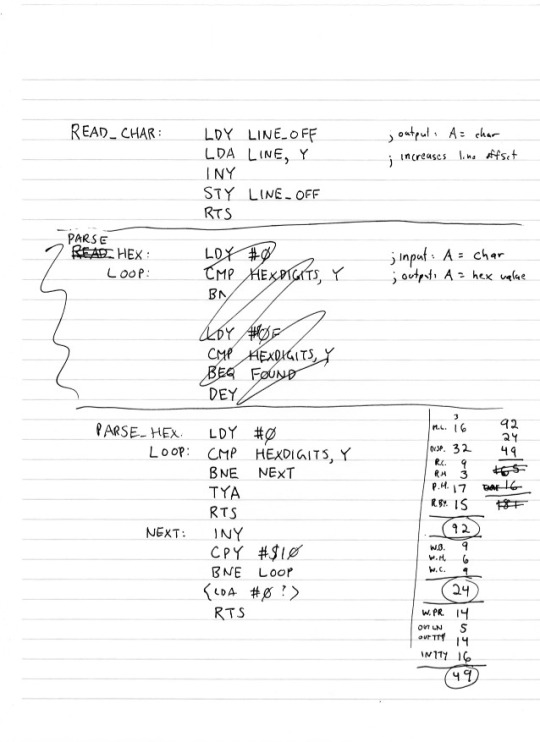 READ_CHAR: LDY LINE_OFF ; output: A = char
LDA LINE, Y ; increases line offset
INY
STY LINE_OFF
RTS
PARSE
READ_HEX: LDY #0 ; input: A = char
LOOP: CMP HEXDIGITS, Y ; output: A = hex value
BN
LDY #$0F
CMP HEXDIGITS, Y
BEQ FOUND
DEY
PARSE_HEX. LDY #0
LOOP: CMP HEXDIGITS, Y
BNE NEXT
TYA
RTS
NEXT: INY
CPY #$10
BNE LOOP
(LDA #0 ?)
RTS
3
M.L. 16 92
24
DISP. 32 49
R.C. 9 165
R.H 3 16
P.H. 17 181
R.BY. 15
92
W.B. 9
W.H. 6
W.C. 9
24
W.PR 14
OUT LN 5
OUT TTY 14
IN TTY 16
49